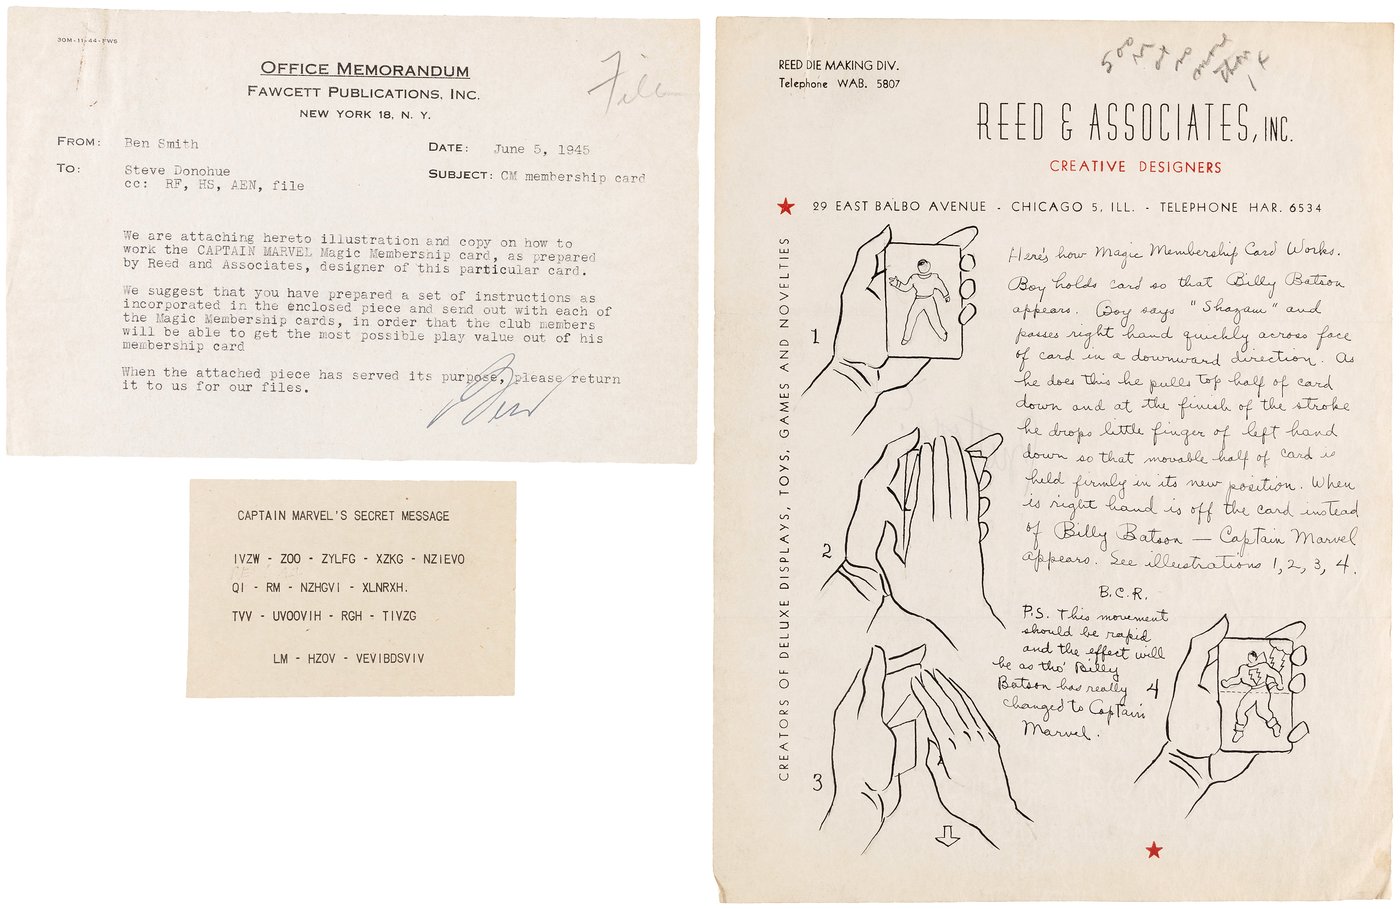 30M-11-44-FWS
OFFICE MEMORANDUM
FAWCETT PUBLICATIONS, INC.
NEW YORK 18, N. Y.
File
FROM: Ben Smith
DATE: June 5, 1945
TO: Steve Donohue
cc: RF, HS, AEN, file
SUBJECT: CM membership card
We are attaching hereto illustration and copy on how to
work the CAPTAIN MARVEL Magic Membership card, as prepared
by Reed and Associates, designer of this particular card.
We suggest that you have prepared a set of instructions as
incorporated in the enclosed piece and send out with each of
the Magic Membership cards, in order that the club members
will be able to get the most possible play value out of his
membership card
When the attached piece has served its purpose, please return
it to us for our files.
Ben
CAPTAIN MARVEL'S SECRET MESSAGE
IVZW - ZOO - ZYLFG - XZKG - NZIEVO
QI - RM - NZHGVI - XLNRXH.
TVV - UVOOVIH - RGH - TIVZG
LM - HZOV - VEVIBDSVIV
REED DIE MAKING DIV.
Telephone WAB. 5807
REED & ASSOCIATES, INC.
CREATIVE DESIGNERS
29 EAST BALBO AVENUE - CHICAGO 5, ILL. - TELEPHONE HAR. 6534
CREATORS OF DELUXE DISPLAYS, TOYS, GAMES AND NOVELTIES
Here's how Magic Membership Card Works.
Boy holds card so that Billy Batson
appears. Boy says "Shazam" and
passes right hand quickly across face
of card in a downward direction. As
he does this he pulls top half of card
down and at the finish of the stroke
he drops little finger of left hand
down so that movable half of card is
held firmly in its new position. When
is right hand is off the card instead
of Billy Batson — Captain Marvel
appears. See illustrations 1, 2, 3, 4.
B.C.R.
P.S. This movement
should be rapid
and the effect will
be as tho' Billy
Batson has really
changed to Captain
Marvel.
1
2
3
4